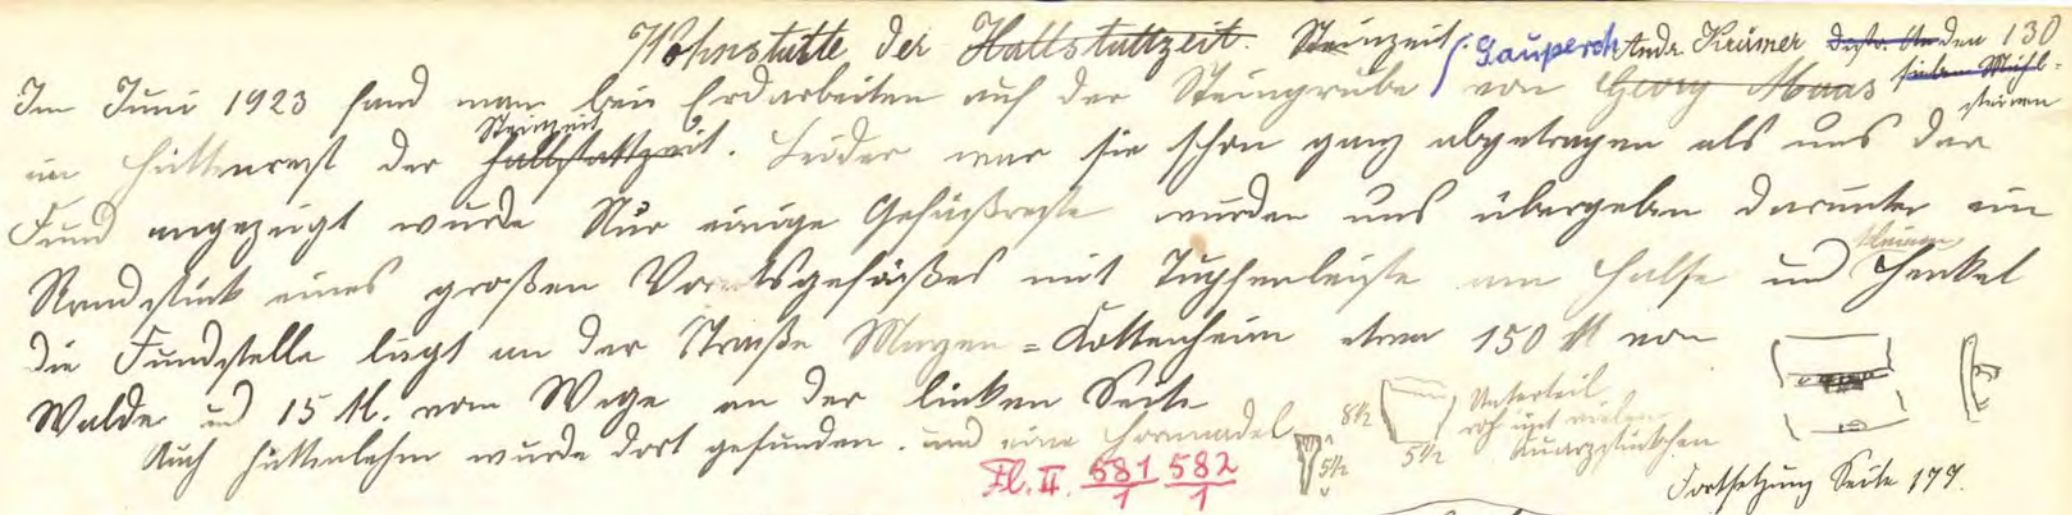 Wohnstätte der Hallstattzeit. Steinzeit. Gauperch Andr. Krämer den 130
Im Juni 1923 fand man bei Erdarbeiten auf der Steingrube von Georg Maas sieben Mühl-
steinen
Steinzeit
ein Hüttenrest der Hallstattzeit. Leider war sie schon ganz abgetragen als uns der
Fund angezeigt wurde Nur einige Gefäßreste wurden uns übergeben darunter ein
kleinen
Randstück eines großen Vorratsgefäßes mit Tupfenleiste am Halse und Henkel
die Fundstelle liegt an der Straße Mayen=Kottenheim etwa 150 M von
Walde und 15 M. vom Wege an der linken Seite
Auch Hüttenlehm wurde dort gefunden. und eine Hornnadel
5½
8½
5½
Unterteil
roh mit vielen
Quarzstückchen
Fl. II. 581/1 582/1
Fortsetzung Seite 177.